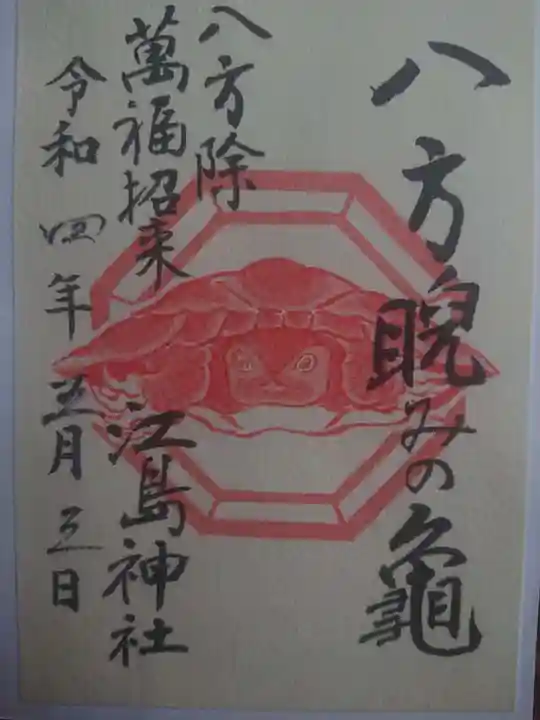 八方睨みの亀
八方除
萬福招来
江島神社
令和四年五月三日